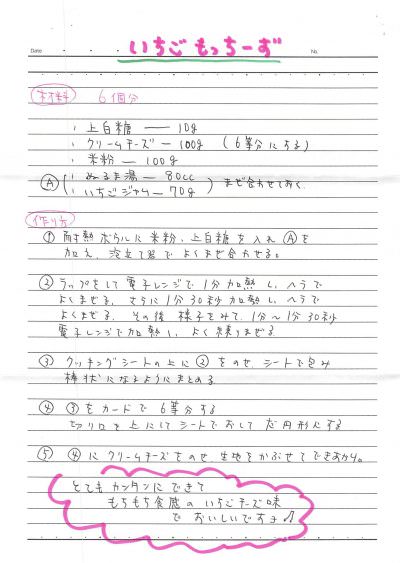 いちごもっちーず
Date
No.
材料 6個分
・上白糖 ― 10g
・クリームチーズ ― 100g (6等分にする)
・米粉 ― 100g
Ⓐ(・ぬるま湯 ― 80cc
・いちごジャム ― 70g) まぜ合わせておく
作り方
① 耐熱ボウルに米粉、上白糖を入れⒶを
加え、泡立て器でよくまぜ合わせる。
② ラップをして電子レンジで1分加熱し、ヘラで
よくまぜる。さらに1分30秒加熱し、ヘラで
よくまぜる。その後様子をみて、1分～1分30秒
電子レンジで加熱し、よく練りまぜる。
③ クッキングシートの上に②をのせ、シートで包み
棒状になるようにまとめる
④ ③をカードで6等分する
切り口を上にしてシートでおして だ円形にする
⑤ ④にクリームチーズをのせ、生地をかぶせてできあがり。
とてもカンタンにできて
もちもち食感のいちごチーズ味
でおいしいですよ♪